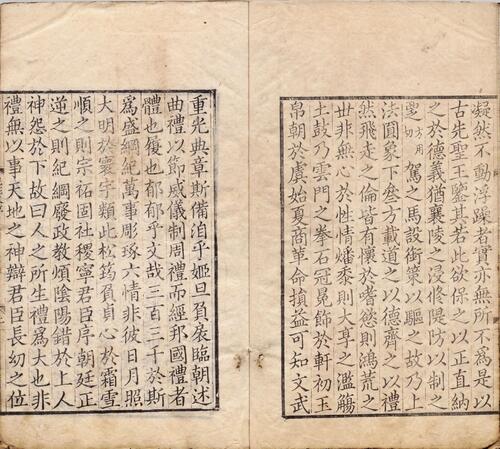 凝然不動浮躁者實亦無所不爲是以
古先聖王鑒其若此欲保之以正直納
之於德義猶襄陵之浸修隄防以制之
覂方用切駕之馬設銜策以驅之故乃上
法圓象下叅方載道之以德齊之以禮
然飛走之倫皆有懷於嗜慾則鴻荒之
世非無心於性情燔黍則大享之濫觴
土鼓乃雲門之拳石冠冕飾於軒初玉
帛朝於虞始夏商革命損益可知文武
重光典章斯備洎乎姬旦負扆臨朝述
曲禮以節威儀制周禮而經邦國禮者
體也履也郁郁乎文哉三百三千於斯
爲盛綱紀萬事彫琢六情非彼日月照
大明於寰宇類此松筠負貞心於霜雪
順之則宗祏固社稷寧君臣序朝廷正
逆之則紀綱廢政教煩陰陽錯於上人
神怨於下故曰人之所生禮爲大也非
禮無以事天地之神辯君臣長幼之位